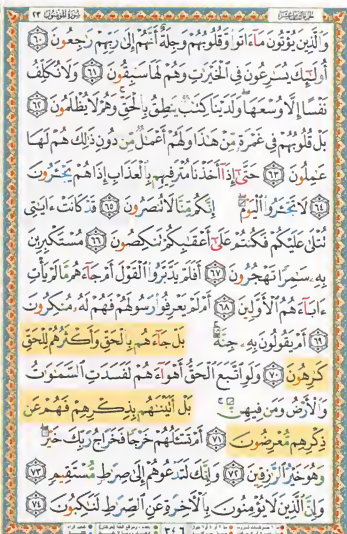 الجزء الثامن عشر سورة المؤمنون ٢٣
وَالَّذِينَ يُؤْتُونَ مَا ءَاتَوا وَّقُلُوبُهُمْ وَجِلَةٌ أَنَّهُمْ إِلَىٰ رَبِّهِمْ رَٰجِعُونَ ٦٠
أُو۟لَٰٓئِكَ يُسَٰرِعُونَ فِى ٱلْخَيْرَٰتِ وَهُمْ لَهَا سَٰبِقُونَ ٦١ وَلَا نُكَلِّفُ
نَفْسًا إِلَّا وُسْعَهَا ۖ وَلَدَيْنَا كِتَٰبٌ يَنطِقُ بِٱلْحَقِّ ۚ وَهُمْ لَا يُظْلَمُونَ ٦٢
بَلْ قُلُوبُهُمْ فِى غَمْرَةٍ مِّنْ هَٰذَا وَلَهُمْ أَعْمَٰلٌ مِّن دُونِ ذَٰلِكَ هُمْ لَهَا
عَٰمِلُونَ ٦٣ حَتَّىٰٓ إِذَآ أَخَذْنَا مُتْرَفِيهِم بِٱلْعَذَابِ إِذَا هُمْ يَجْـَٔرُونَ
٦٤ لَا تَجْـَٔرُوا۟ ٱلْيَوْمَ ۖ إِنَّكُم مِّنَّا لَا تُنصَرُونَ ٦٥ قَدْ كَانَتْ ءَايَٰتِى
تُتْلَىٰ عَلَيْكُمْ فَكُنتُمْ عَلَىٰٓ أَعْقَٰبِكُمْ تَنكِصُونَ ٦٦ مُسْتَكْبِرِينَ
بِهِۦ سَٰمِرًا تَهْجُرُونَ ٦٧ أَفَلَمْ يَدَّبَّرُوا۟ ٱلْقَوْلَ أَمْ جَآءَهُم مَّا لَمْ يَأْتِ
ءَابَآءَهُمُ ٱلْأَوَّلِينَ ٦٨ أَمْ لَمْ يَعْرِفُوا۟ رَسُولَهُمْ فَهُمْ لَهُۥ مُنكِرُونَ
٦٩ أَمْ يَقُولُونَ بِهِۦ جِنَّةٌۢ ۚ بَلْ جَآءَهُم بِٱلْحَقِّ وَأَكْثَرُهُمْ لِلْحَقِّ
كَٰرِهُونَ ٧٠ وَلَوِ ٱتَّبَعَ ٱلْحَقُّ أَهْوَآءَهُمْ لَفَسَدَتِ ٱلسَّمَٰوَٰتُ
وَٱلْأَرْضُ وَمَن فِيهِنَّ ۚ بَلْ أَتَيْنَٰهُم بِذِكْرِهِمْ فَهُمْ عَن
ذِكْرِهِم مُّعْرِضُونَ ٧١ أَمْ تَسْـَٔلُهُمْ خَرْجًا فَخَرَاجُ رَبِّكَ خَيْرٌ ۖ
وَهُوَ خَيْرُ ٱلرَّٰزِقِينَ ٧٢ وَإِنَّكَ لَتَدْعُوهُمْ إِلَىٰ صِرَٰطٍ مُّسْتَقِيمٍ ٧٣
وَإِنَّ ٱلَّذِينَ لَا يُؤْمِنُونَ بِٱلْءَاخِرَةِ عَنِ ٱلصِّرَٰطِ لَنَٰكِبُونَ ٧٤
٣٤٦